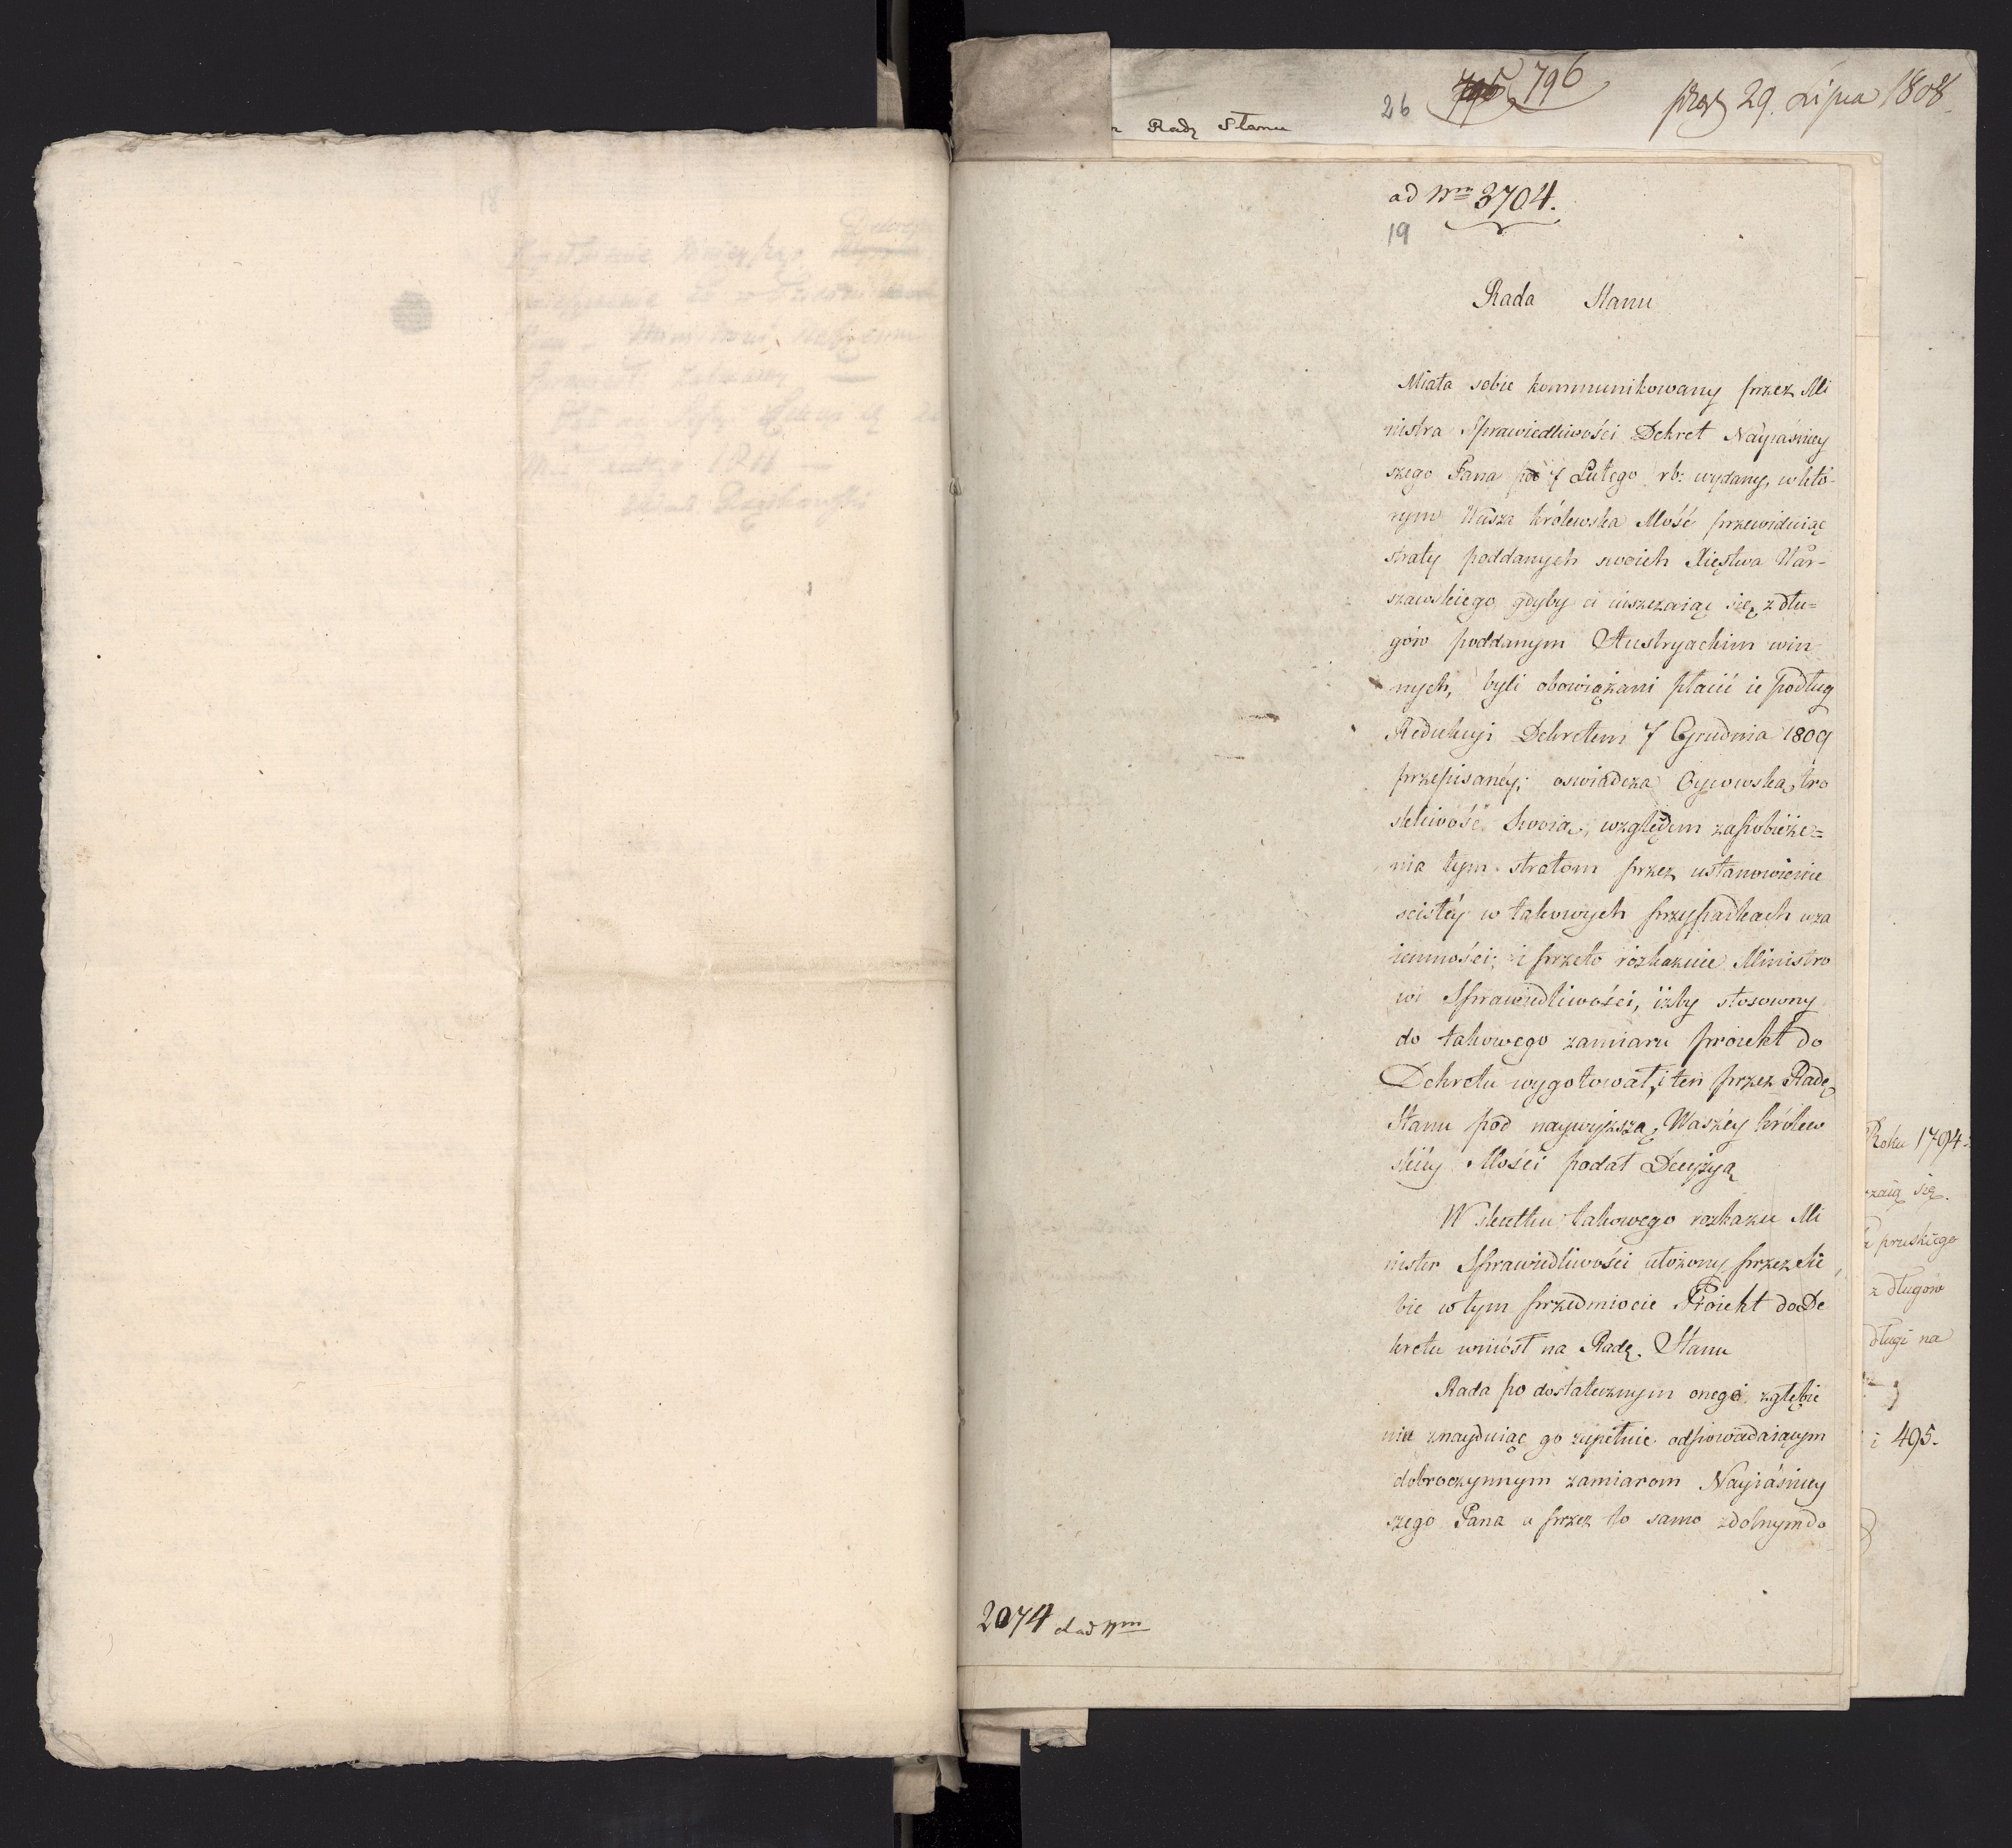 26 796
prez 29. Lipca 1808
Radę Stanu
ad Nrm 3704.
19
Rada Stanu
Miała sobie kommunikowany przez Mi
nistra Sprawiedliwości Dekret Nayiaśniey
szego Pana pod 7 Lutego rb: wydany, w któ-
rym Wasza królewska Mość przewiduiąc
straty poddanych swoich Xięstwa War-
szawskiego gdyby ci uiszczaiąc się z dłu=
gów poddanym Austryackim win
nych, byli obowiązani płacić ie podług
Redukcyi Dekretem 7 Grudnia 1809
przepisanéy; oswiadcza Oycowską tro
skliwość Swoią, względem zapobieże=
nia tym stratom przez ustanowienie
scisłéy w takowych przypadkach wza
iemności; i przeto rozkazuie Ministro
wi Sprawiedliwości, iżby stosowny
do takowego zamiaru proiekt do
Dekretu wygotował, i ten przez Radę
Stanu pod naywyższą Waszéy królew
skiéy Mości podał Decyzyą
W skutku takowego rozkazu Mi
nister Sprawiedliwości ułożony przez sie
bie w tym przedmiocie Proiekt do De
kretu wniósł na Radę Stanu
Rada po dostatecznym onego zgłębie
niu znayduiąc go zupełnie odpowiadaiącym
dobroczynnym zamiarom Nayiaśniey
szego Pana a przez to samo zdolnym do
2074 d ad Nrm
Roku 1794
zaią się.
pruskiego
z długow
długi na
i 495.